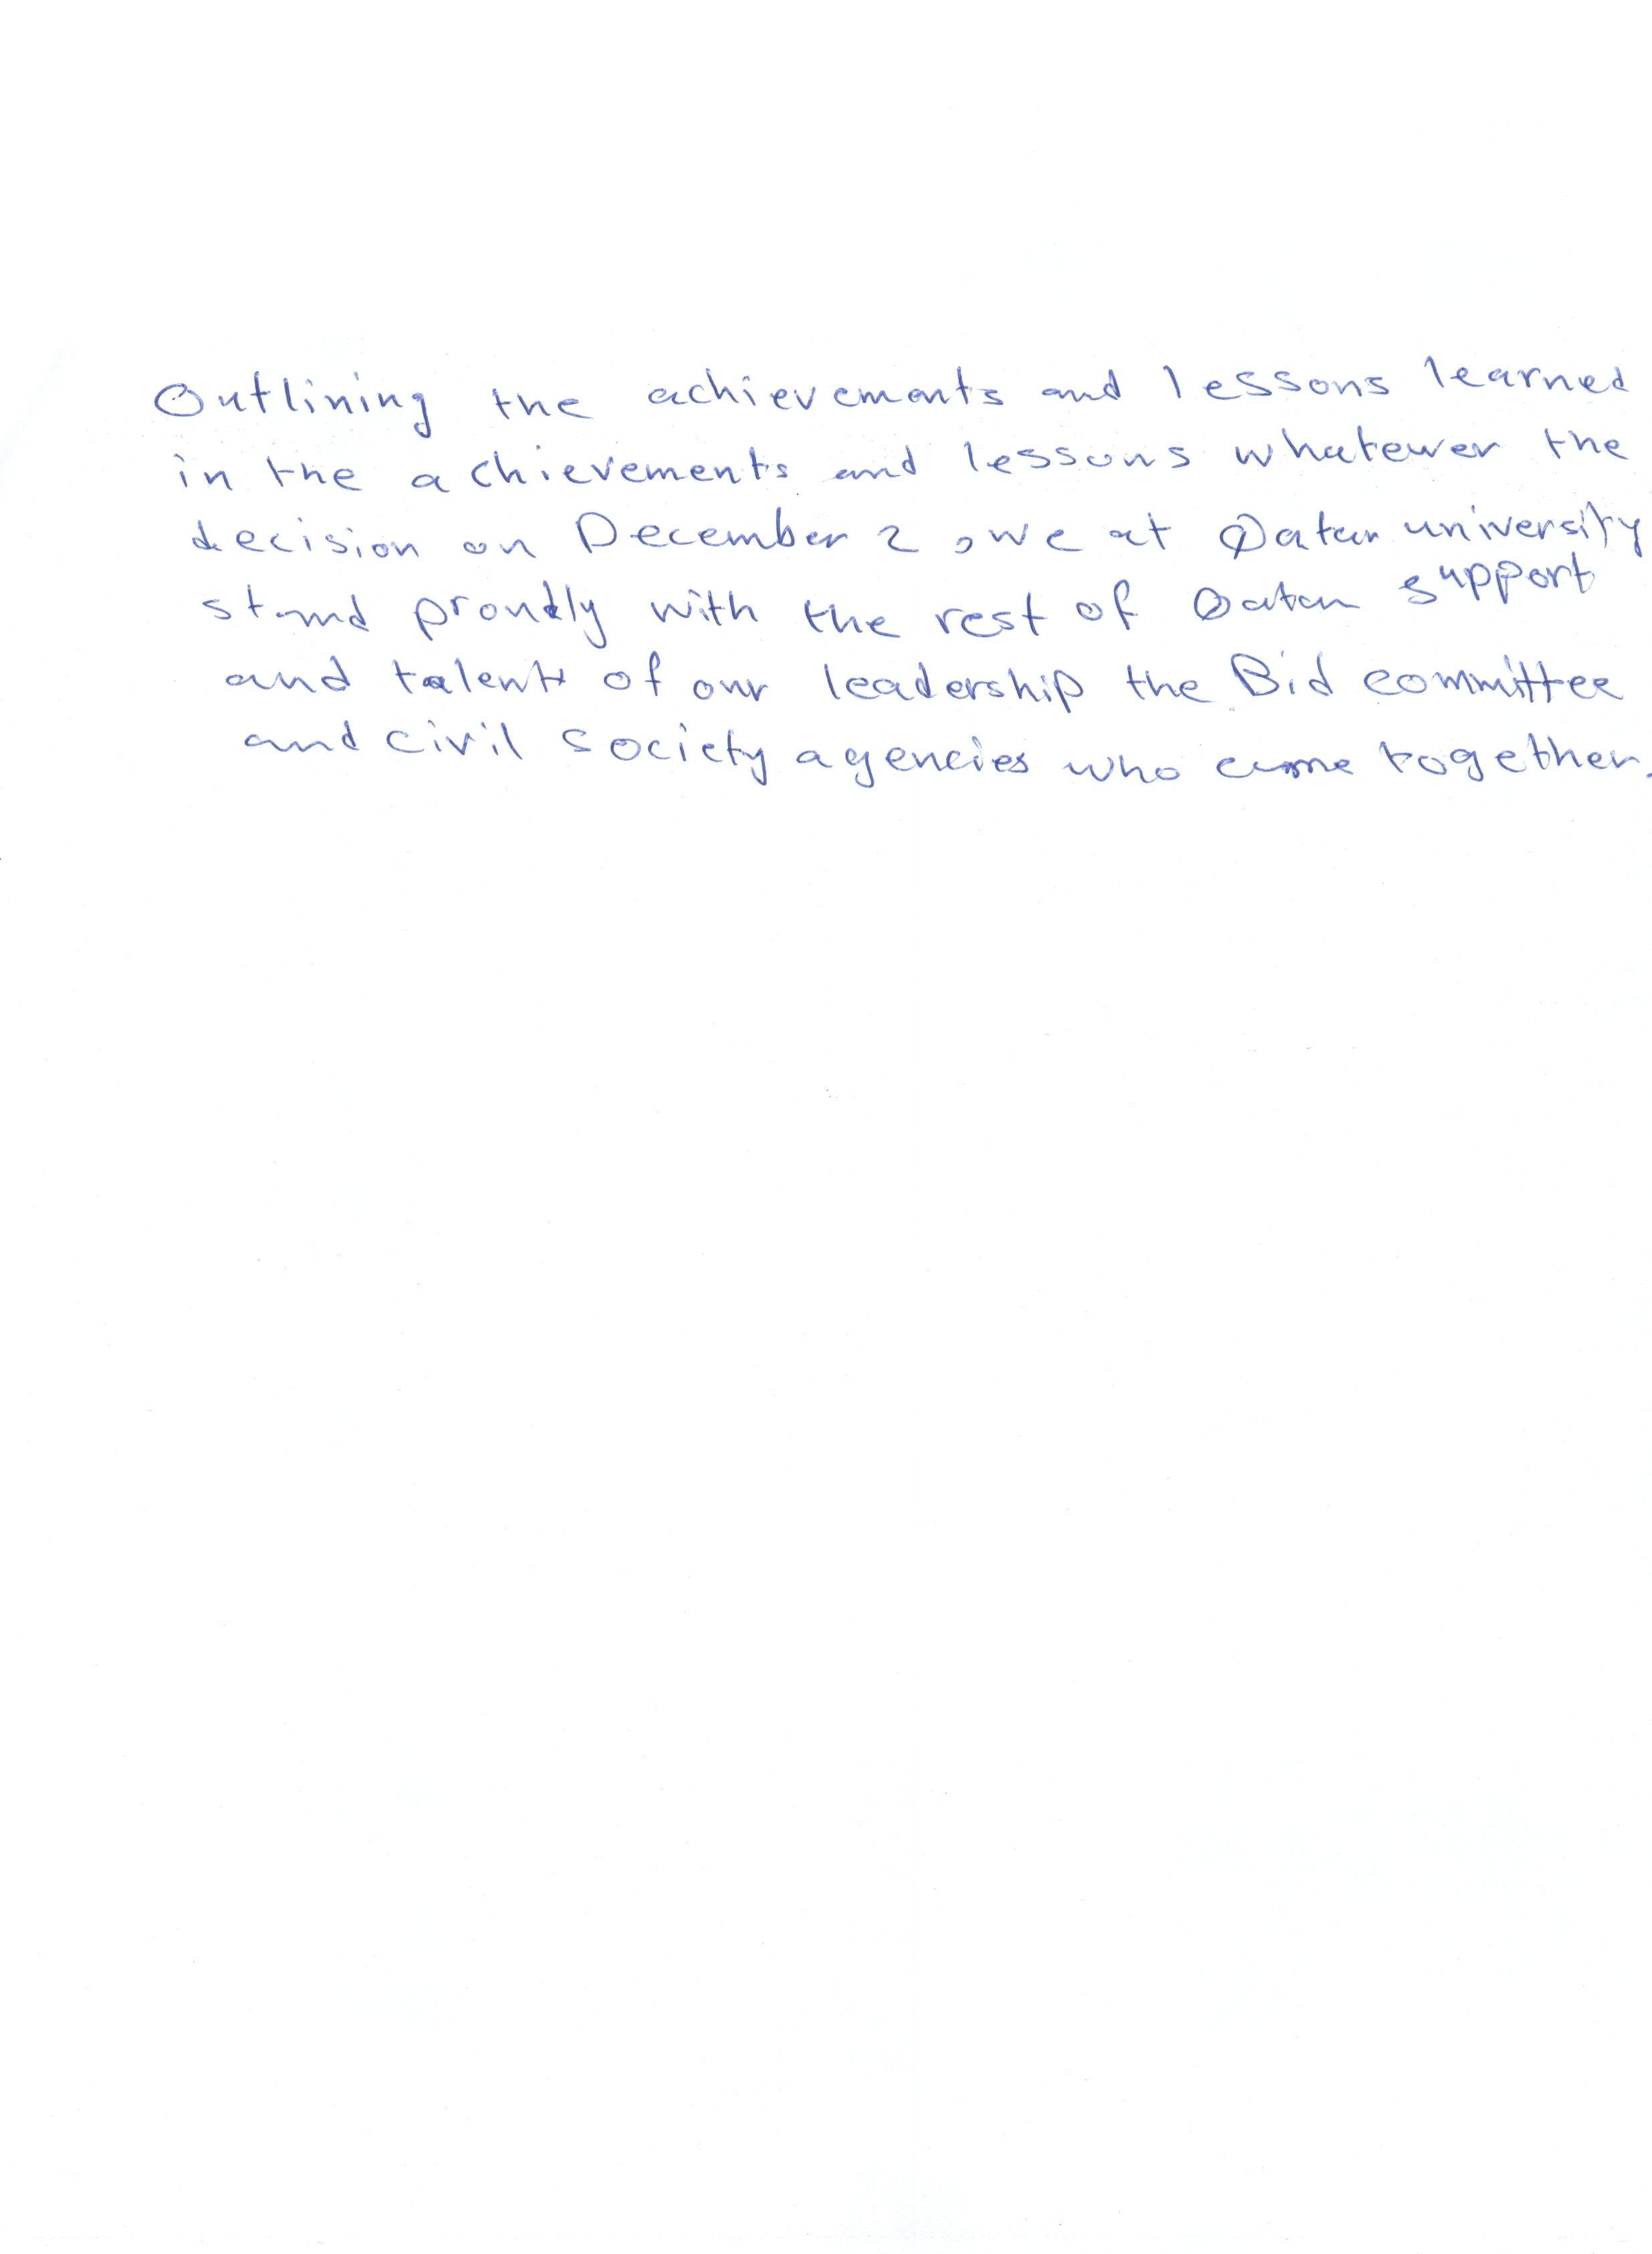 Outlining the achievements and lessons learned
in the achievements and lessons whatever the
decision on December 2, we at Qatar university
stand proudly with the rest of Qatar support
and talent of our leadership the Bid committee
and civil society agencies who came together.